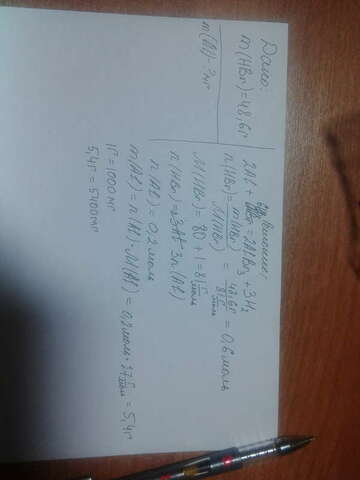 Дано:
m(HBr)=48,6г
m(Al)-? мг
2Al + 6HBr = 2AlBr3 + 3H2
n(HBr) = m(HBr) / M(HBr) = 48,6г / 81 г/моль = 0,6 моль
M(HBr) = 80 + 1 = 81 г/моль
n(HBr) = 3n(Al)
n(Al) = 0,2 моль
m(Al) = n(Al)·M(Al) = 0,2 моль · 27 г/моль = 5,4г
1г = 1000мг
5,4г = 5400мг